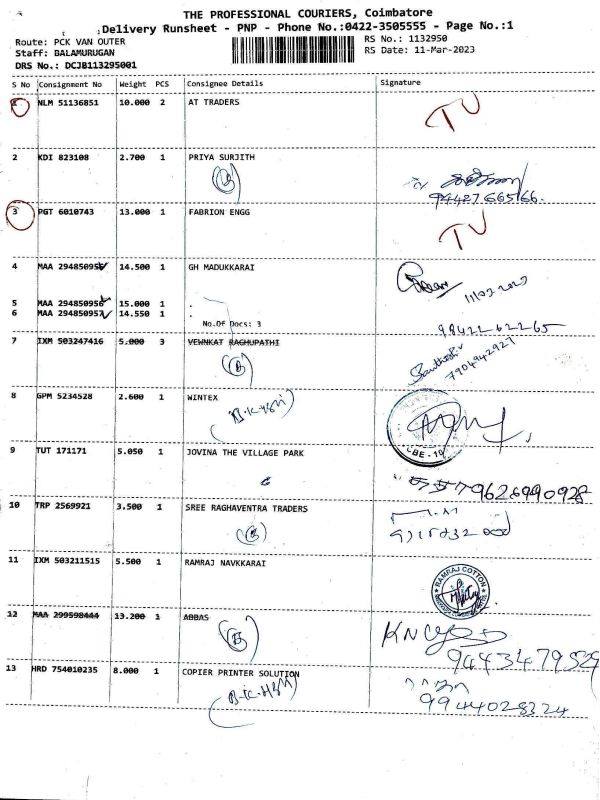 THE PROFESSIONAL COURIERS, Coimbatore
Delivery Runsheet - PNP - Phone No.:0422-3505555 - Page No.:1
Route: PCK VAN OUTER
RS No.: 1132950
Staff: BALAMURUGAN
RS Date: 11-Mar-2023
DRS No.: DCJB113295001
S No Consignment No Weight PCS Consignee Details Signature
1 NLM 51136851 10.000 2 AT TRADERS
TU
2 KDI 823108 2.700 1 PRIYA SURJITH
B
9442766566
3 PGT 6010743 13.000 1 FABRION ENGG
TU
4 MAA 294850955 14.500 1 GH MADUKKARAI
11/03/2023
5 MAA 294850956 15.000 1 .
6 MAA 294850957 14.550 1 .
No.Of Docs: 3
9842262265
7 IXM 503247416 5.000 3 VEWNKAT RAGHUPATHI
B
7904942927
8 GPM 5234528 2.600 1 WINTEX
CBE - 10
9 TUT 171171 5.050 1 JOVINA THE VILLAGE PARK
9626990928
10 TRP 2569921 3.500 1 SREE RAGHAVENTRA TRADERS
B
11 IXM 503211515 5.500 1 RAMRAJ NAVKKARAI
RAMRAJ COTTON
12 MAA 299598444 13.200 1 ABBAS
B
9443479529
13 HRD 754010235 8.000 1 COPIER PRINTER SOLUTION
9944028324